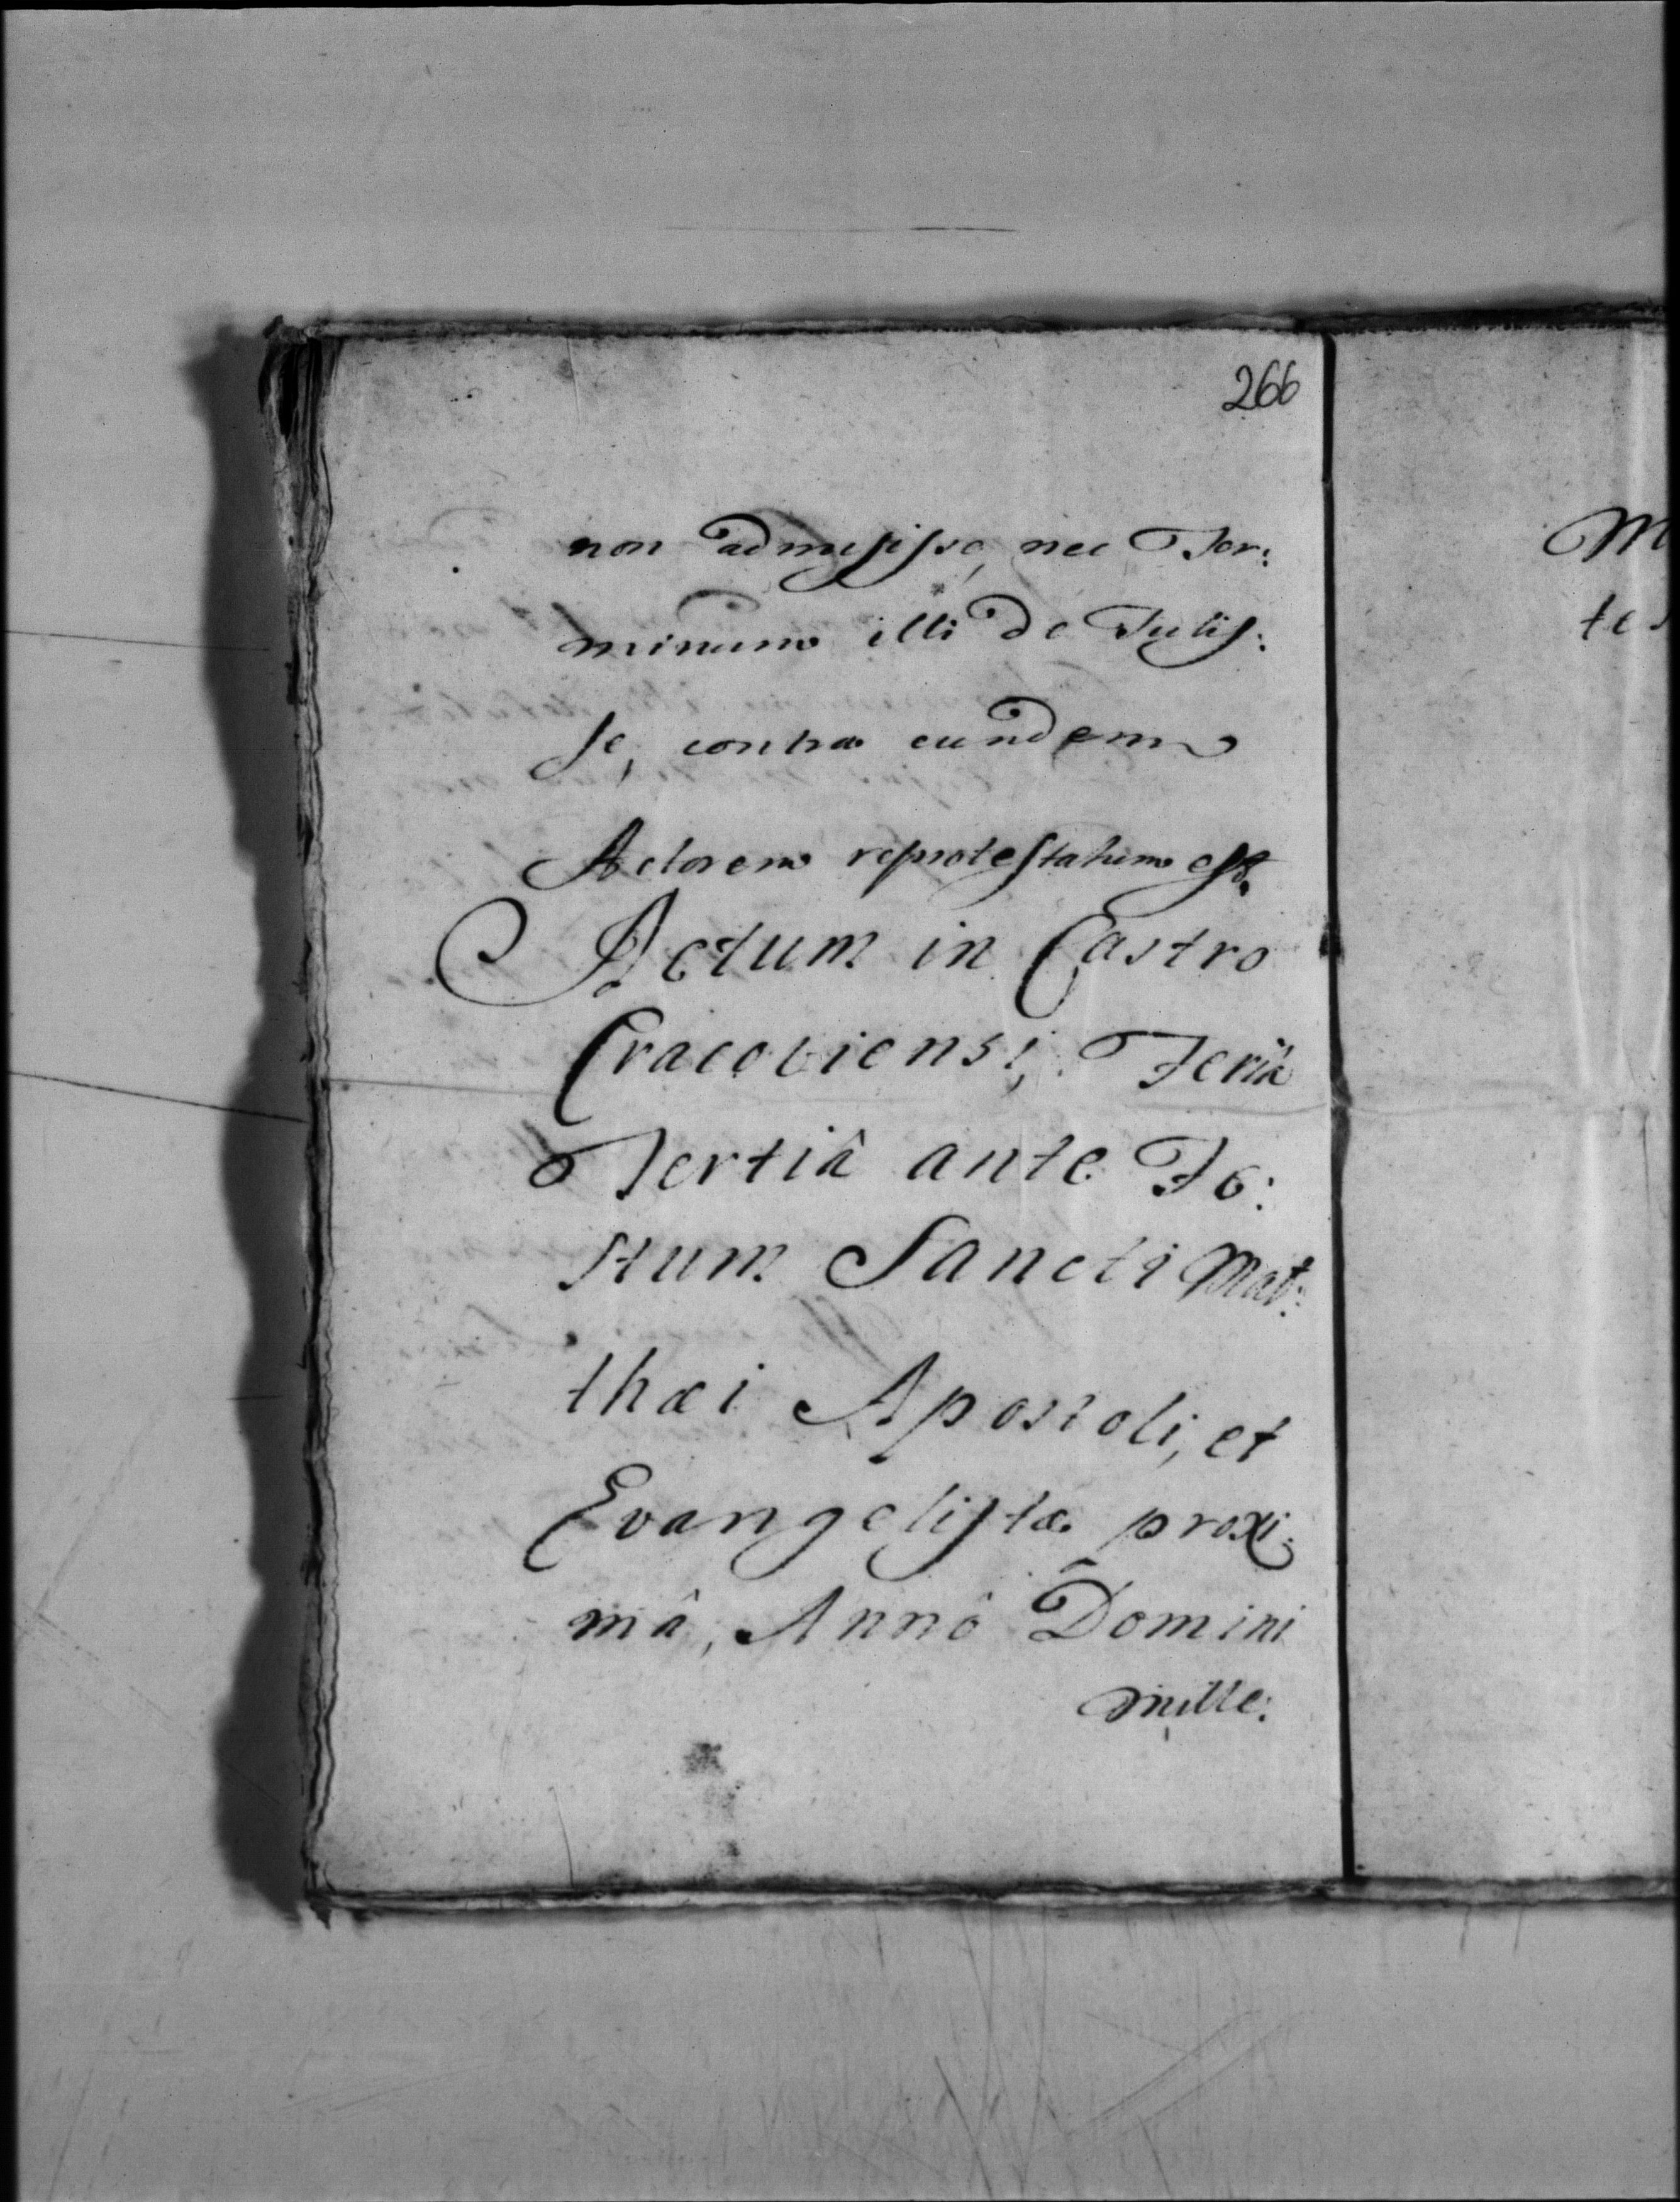 266
non admisisse, nec Ter:
minum illi de Tulis:
se, contra eundem
Actorem reprotestatum est.
Actum in Castro
Cracoviensi, Feriâ
Tertiâ ante Fe:
stum Sancti Mat:
thæi Apostoli, et
Evangelistæ proxi:
mâ, Annô Domini
mille:
M
tes